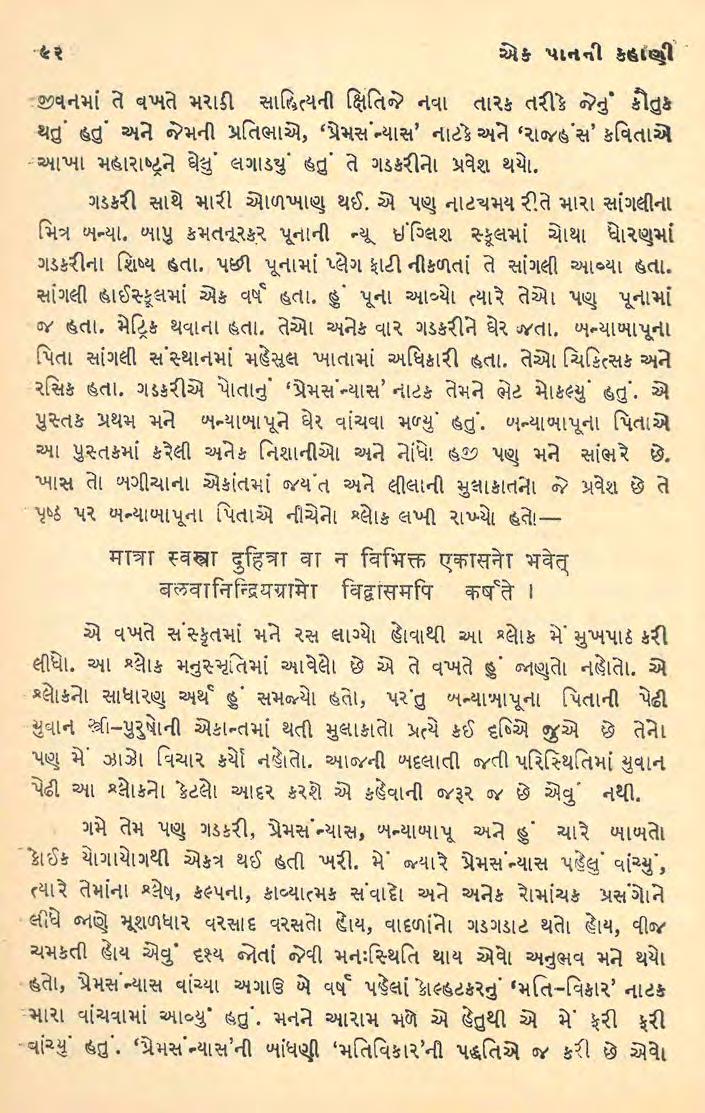 ૯૨ એક પાનની કહાણી
જીવનમાં તે વખતે મરાઠી સાહિત્યની ક્ષિતિજે નવા તારક તરીકે જેનું કૌતુક
થતું હતું અને જેમની પ્રતિભાએ, ‘પ્રેમસંન્યાસ’ નાટકે અને ‘રાજહંસ’ કવિતાએ
આખા મહારાષ્ટ્રને ઘેલું લગાડયું હતું તે ગડકરીનો પ્રવેશ થયો.
ગડકરી સાથે મારી ઓળખાણ થઈ. એ પણ નાટયમય રીતે મારા સાંગલીના
મિત્ર બન્યા. બાપુ કમતનૂરકર પૂનાની ન્યૂ ઇંગ્લિશ સ્કૂલમાં ચોથા ધોરણમાં
ગડકરીના શિષ્ય હતા. પછી પૂનામાં પ્લેગ ફાટી નીકળતાં તે સાંગલી આવ્યા હતા.
સાંગલી હાઈસ્કૂલમાં એક વર્ષ હતા. હું પૂના આવ્યો ત્યારે તેઓ પણ પૂનામાં
જ હતા. મેટ્રિક થવાના હતા. તેઓ અનેક વાર ગડકરીને ઘેર જતા. બન્યાબાપૂના
પિતા સાંગલી સંસ્થાનમાં મહેસૂલ ખાતામાં અધિકારી હતા. તેઓ ચિકિત્સક અને
રસિક હતા. ગડકરીએ પોતાનું ‘પ્રેમસંન્યાસ’ નાટક તેમને ભેટ મોકલ્યું હતું. એ
પુસ્તક પ્રથમ મને બન્યાબાપૂને ઘેર વાંચવા મળ્યું હતું. બન્યાબાપૂના પિતાએ
આ પુસ્તકમાં કરેલી અનેક નિશાનીઓ અને નોંધો હજી પણ મને સાંભરે છે.
ખાસ તો બગીચાના એકાંતમાં જયંત અને લીલાની મુલાકાતનો જે પ્રવેશ છે તે
પૃષ્ઠ પર બન્યાબાપૂના પિતાએ નીચેનો શ્લોક લખી રાખ્યો હતો—
मात्रा स्वस्त्रा दुहित्रा वा न विभिक्त एकासनेा भवेत्
बलवानिन्द्रियग्रामेा विद्वांसमपि कर्षते ।
એ વખતે સંસ્કૃતમાં મને રસ લાગ્યો હોવાથી આ શ્લોક મેં મુખપાઠ કરી
લીધો. આ શ્લોક મનુસ્મૃતિમાં આવેલો છે એ તે વખતે હું જાણતો નહોતો. એ
શ્લોકનો સાધારણ અર્થ હું સમજ્યો હતો, પરંતુ બન્યાબાપૂના પિતાની પેઢી
યુવાન સ્ત્રી-પુરુષોની એકાન્તમાં થતી મુલાકાતો પ્રત્યે કઈ દષ્ટિએ જુએ છે તેનો
પણ મેં ઝાઝો વિચાર કર્યો નહોતો. આજની બદલાતી જતી પરિસ્થિતિમાં યુવાન
પેઢી આ શ્લોકનો કેટલો આદર કરશે એ કહેવાની જરૂર જ છે એવું નથી.
ગમે તેમ પણ ગડકરી, પ્રેમસંન્યાસ, બન્યાબાપૂ અને હું ચારે બાબતો
કોઈક યોગાયોગથી એકત્ર થઈ હતી ખરી. મેં જ્યારે પ્રેમસંન્યાસ પહેલું વાંચ્યું,
ત્યારે તેમાંના શ્લેષ, કલ્પના, કાવ્યાત્મક સંવાદો અને અનેક રોમાંચક પ્રસંગોને
લીધે જાણે મૂશળધાર વરસાદ વરસતો હોય, વાદળાંનો ગડગડાટ થતો હોય, વીજ
ચમકતી હોય એવું દશ્ય જોતાં જેવી મનઃસ્થિતિ થાય એવો અનુભવ મને થયો
હતો, પ્રેમસંન્યાસ વાંચ્યા અગાઉ બે વર્ષ પહેલાં કોલ્હટકરનું ‘મતિ-વિકાર’ નાટક
મારા વાંચવામાં આવ્યું હતું. મનને આરામ મળે એ હેતુથી એ મેં ફરી ફરી
વાંચ્યું હતું. ‘પ્રેમસંન્યાસ’ની બાંધણી ‘મતિવિકાર’ની પદ્ધતિએ જ કરી છે એવો